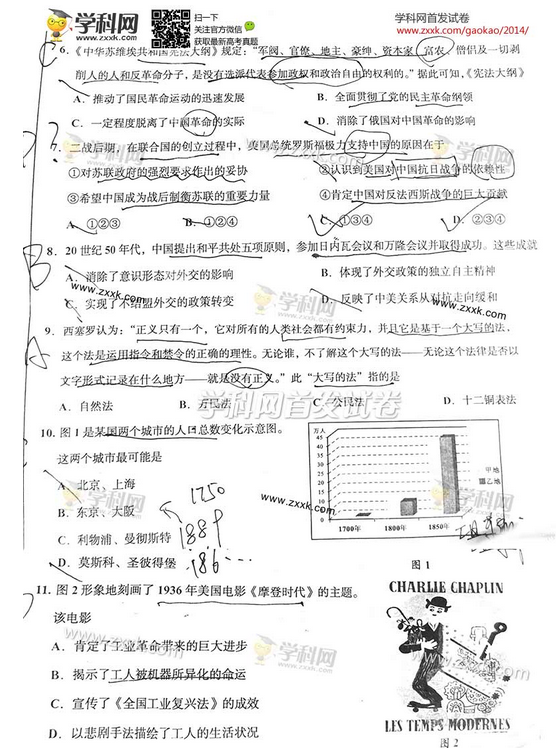 学科网 www.zxxk.com
扫一下
关注官方微信
获取最新高考真题
学科网首发试卷
www.zxxk.com/gaokao/2014/
6.《中华苏维埃共和国宪法大纲》规定:“军阀、官僚、地主、豪绅、资本家、富农、僧侣及一切剥
削人的人和反革命分子,是没有选派代表参加政权和政治自由的权利的。”据此可知,《宪法大纲》
A.推动了国民革命运动的迅速发展
B.全面贯彻了党的民主革命纲领
C.一定程度脱离了中国革命的实际
D.消除了俄国对中国革命的影响
二战后期,在联合国的创立过程中,美国总统罗斯福极力支持中国的原因在于
①对苏联政府的强烈要求作出的妥协
②认识到美国对中国抗日战争的依赖性
③希望中国成为战后制衡苏联的重要力量
④肯定中国对反法西斯战争的巨大贡献
A.①②③
B.①②④
C.①③④
D.②③④
B
8. 20世纪50年代,中国提出和平共处五项原则,参加日内瓦会议和万隆会议并取得成功。这些成就
A.消除了意识形态对外交的影响
B.体现了外交政策的独立自主精神
C.实现了不结盟外交的政策转变
D.反映了中美关系从对抗走向缓和
A
9.西塞罗认为:“正义只有一个,它对所有的人类社会都有约束力,并且它是基于一个大写的法,
这个法是运用指令和禁令的正确的理性。无论谁,不了解这个大写的法——无论这个法律是否以
文字形式记录在什么地方——就是没有正义。”此“大写的法”指的是
A.自然法
B.万民法
C.公民法
D.十二铜表法
学科网首发试卷
10.图1是某国两个城市的人口总数变化示意图。
这两个城市最可能是
A.北京、上海
B.东京、大阪
C.利物浦、曼彻斯特
D.莫斯科、圣彼得堡
1750
万人
45
40
35
30
25
20
15
10
5
0
1700年
1800年
1850年
甲地
乙地
图1
11.图2形象地刻画了1936年美国电影《摩登时代》的主题。
该电影
A.肯定了工业革命带来的巨大进步
B.揭示了工人被机器所异化的命运
C.宣传了《全国工业复兴法》的成效
D.以悲剧手法描绘了工人的生活状况
CHARLIE CHAPLIN
LES TEMPS MODERNES
图2